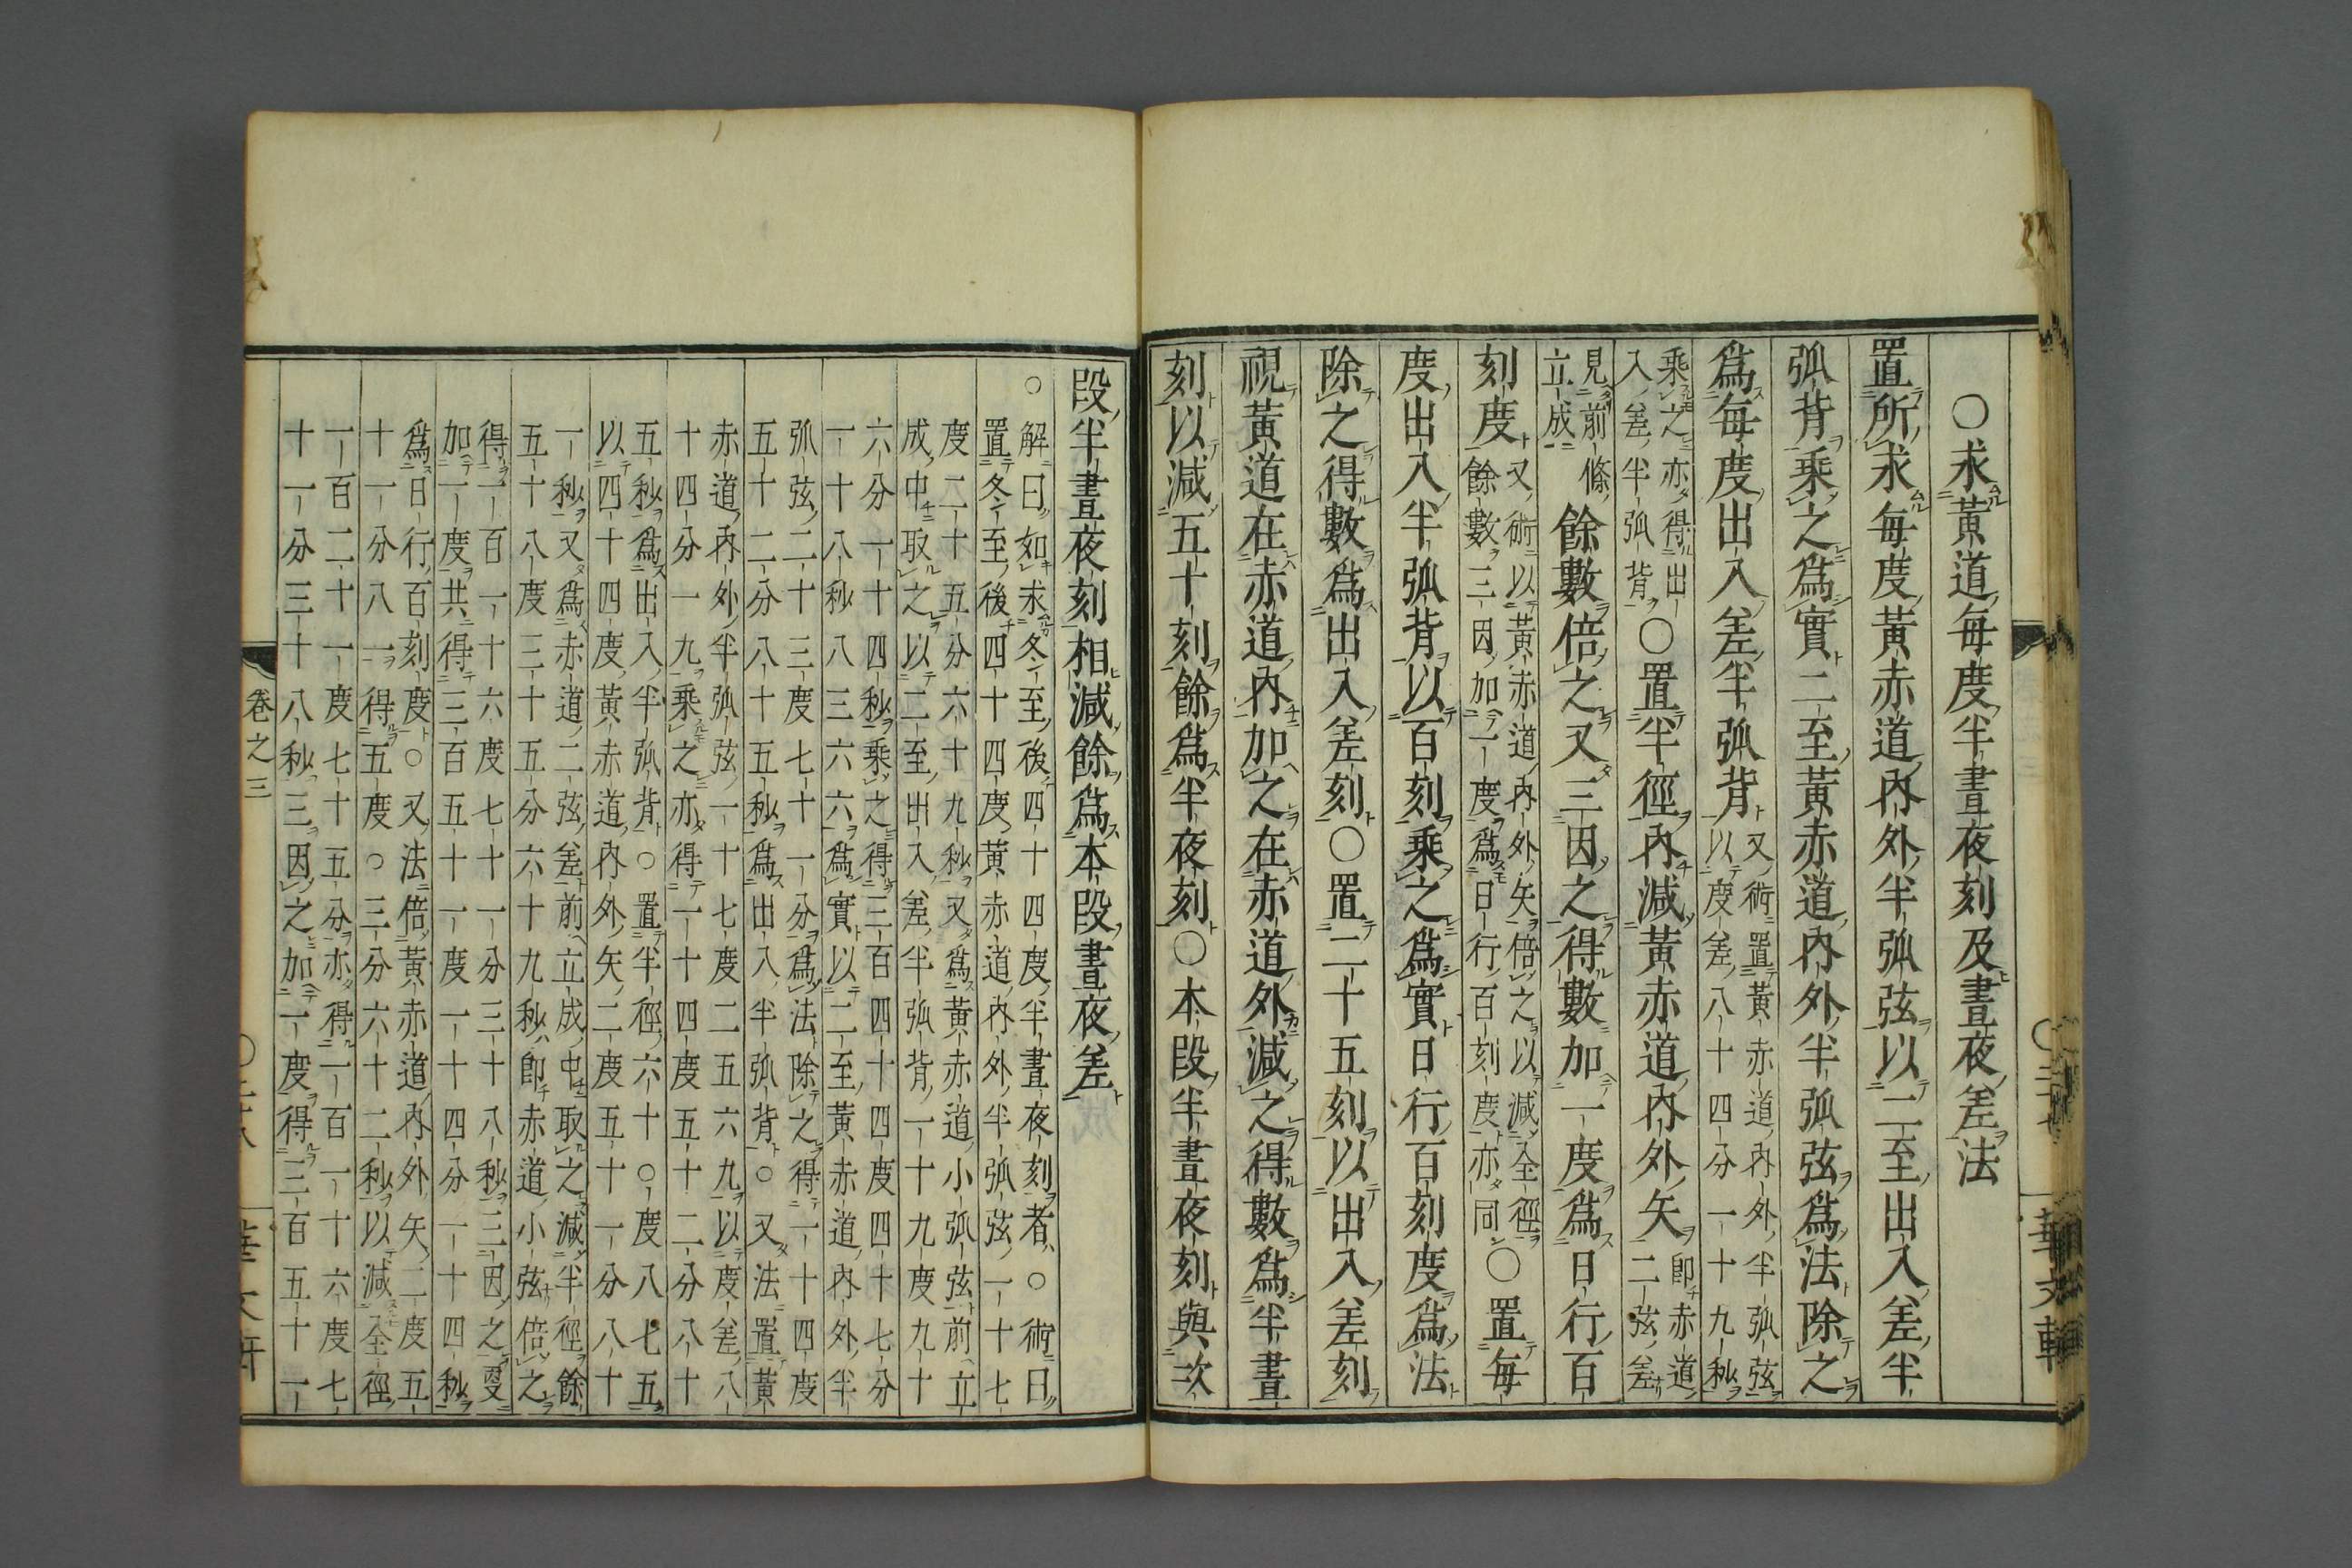 〇求黃道每度半晝夜刻及晝夜差法
置所求每度黃赤道內外半弧弦以二至出入差半
弧背乘之爲實二至黃赤道內外半弧弦爲法除之
爲每度出入差半弧背
又術置黃赤道內外半弧弦
以度差八十四分一十九秒
乘之亦得出
入差半弧背
〇置半徑內減黃赤道內外矢
卽赤道
二弦差
見前條
立成
餘數倍之又三因之得數加一度爲日行百
刻度
又術以黃赤道內外矢倍之以減全徑
餘數三因加一度爲日行百刻度亦同
〇置每
度出入半弧背以百刻乘之爲實日行百刻度爲法
除之得數爲出入差刻〇置二十五刻以出入差刻
視黃道在赤道內加之在赤道外減之得數爲半晝
刻以減五十刻餘爲半夜刻〇本段半晝夜刻與次
段半晝夜刻相減餘爲本段晝夜差
〇解曰如求冬至後四十四度半晝夜刻者〇術曰
置冬至後四十四度黃赤道內外半弧弦一十七
度二十五分六十九秒又爲黃赤道小弧弦前立
成中取之以二至出入差半弧背一十九度九十
六分一十四秒乘之得三百四十四度四十七分
一十八秒八三六六爲實以二至黃赤道內外半
弧弦二十三度七十一分爲法除之得一十四度
五十二分八十五秒爲出入半弧背〇又法置黃
赤道內外半弧弦一十七度二五六九以度差八
十四分一九乘之亦得一十四度五十二分八十
五秒爲出入半弧背〇置半徑六十〇度八七五
以四十四度黃赤道內外矢二度五十一分八十
一秒又爲赤道二弦差前立成中取之減半徑餘
五十八度三十五分六十九秒卽赤道小弦倍之
得一百一十六度七十一分三十八秒三因之更
加一度共得三百五十一度一十四分一十四秒
爲日行百刻度〇又法倍黃赤道內外矢二度五
十一分八一得五度〇三分六十二秒以減全徑
一百二十一度七十五分亦得一百一十六度七
十一分三十八秒三因之加一度得三百五十一
卷之三